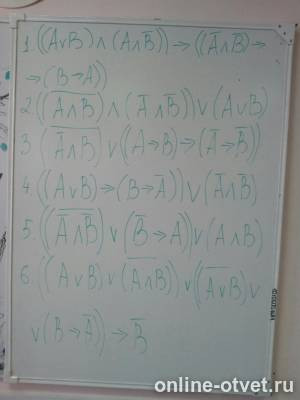 1. ((A∨B)∧(A∧B̅))→((A̅∧B̅)→
→(B→A))
2. ((A̅∧̅B̅)∧(A̅∧B̅))∨(A∨B)
3. (A̅∧̅B̅)∨((A→B)→(A̅→B̅))
4. ((A∨B)→(B→A̅))∨(A̅∧B̅)
5. ((A̅∧B̅)∨(B̅→A))∨(A∧B)
6. ((A∨B)∨(A̅∧̅B̅))∨((A̅∨̅B̅)∨
∨(B→A̅))→B̅
online-otvet.ru